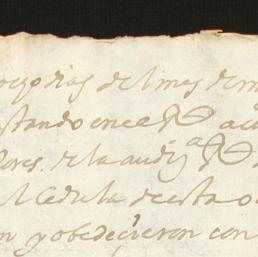 dias del mes de
estando en el a
ores. de la audi^a
l cedula de esta
n y obedecieron con